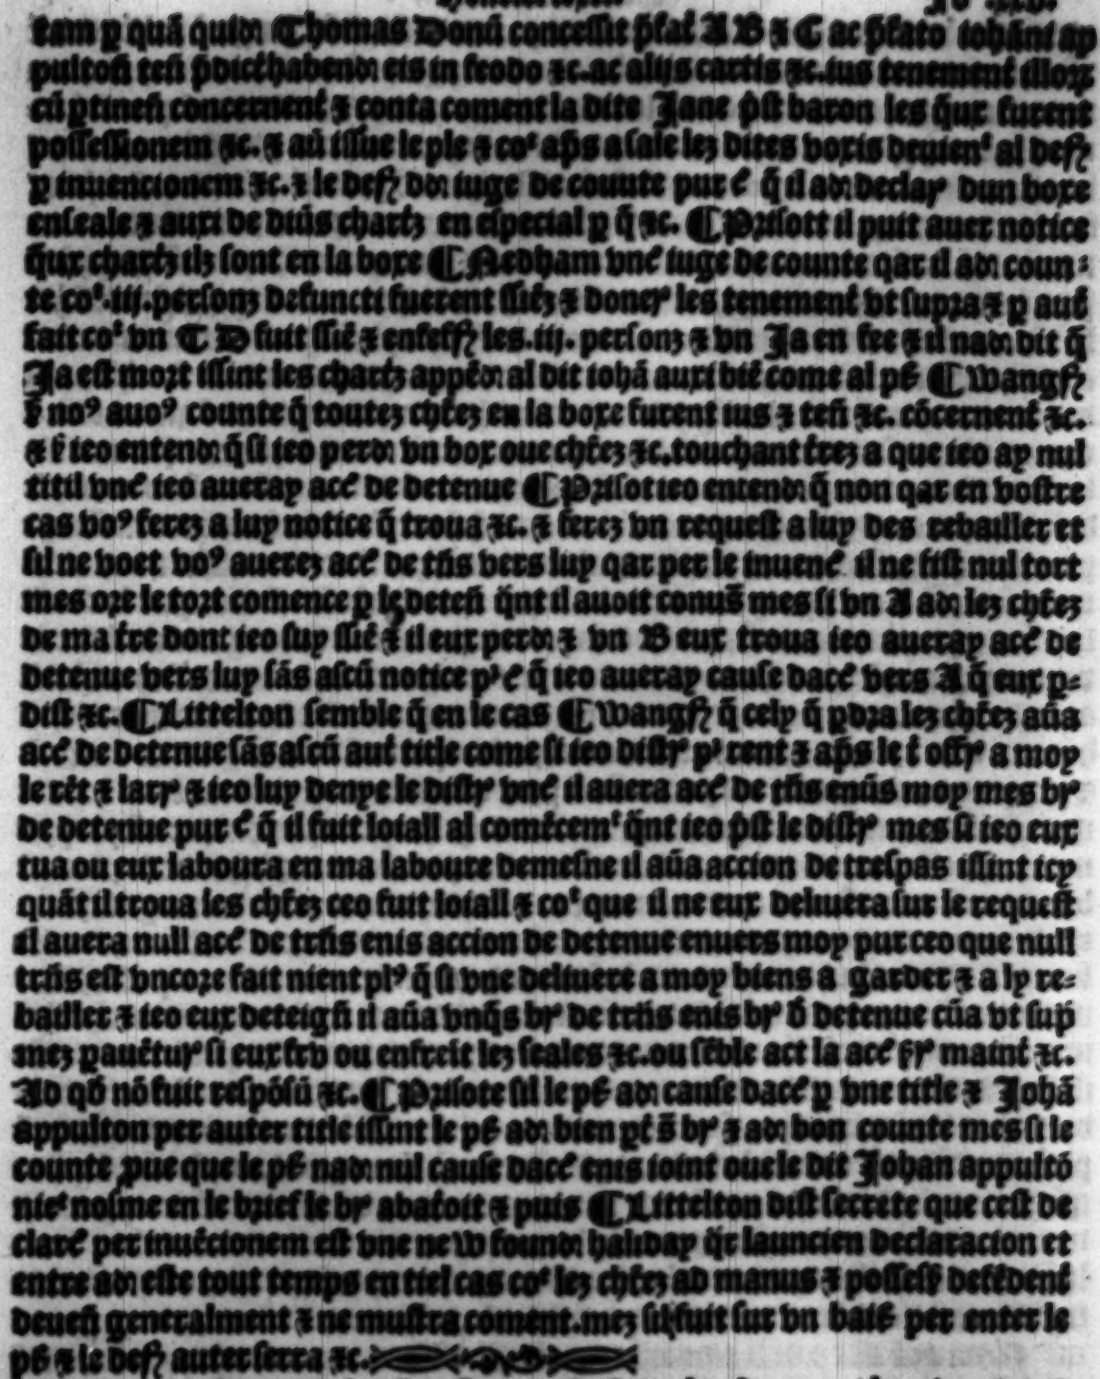 tam ꝑ quā quidē Thomas Donū concessit p̄fat̄ A B ⁊ C ac p̄fato iohāni ap
pultoñ teñ p̄dict̄ habend̄ eis in feodo ⁊c. ac alijs cartis ⁊c. ius tenement̄ illoꝝ
cū ꝑtineñ concernent̄ ⁊ conta coment la dite Jane p̄st baron les q̄ux furent
possessionem ⁊c. ⁊ aū issue le ple ⁊ coꝰ ap̄s a sale lez dites boxis deuienᵗ al def
ꝑ inuencionem ⁊c. ⁊ le def dd̄ iuge de counte pur ć q̄ il ad declar dun boxe
enseale ⁊ auxi de diūs chartz en especial ꝑ q̄ ⁊c. ¶ Prisott il puit auer notice
q̄ux chartz ilz sont en la boxe ¶ Nedham vnć iuge de counte qar il ad coun
te coᵉ .iij. personz defuncti fuerent ssiēz ⁊ doner les tenement̄ vt supra ⁊ ꝑ aut̄
fait coᵉ vn T D fuit ssiē ⁊ enfeff les .iij. personz ⁊ vn Ja en fee ⁊ il nad dit q̄
Ja est mort issint les chartz append̄ al dit iohā auxi biē come al pł ¶ Wangf
ẜ noꝰ auoꝰ counte q̄ toutez chr̄ez en la boxe furent ius ⁊ teñ ⁊c. cōcernent̄ ⁊c.
⁊ ẜ ieo entend q̄ si ieo perd vn box oue chr̄ez ⁊c. touchant t̄rez a que ieo ay nul
titil vnć ieo aueray acć de detenue ¶ Prisot ieo entend q̄ non qar en vostre
cas voꝰ ferez a luy notice q̄ troua ⁊c. ⁊ ferez vn request a luy des rebailler et
sil ne voet voꝰ auerez acć de trn̄s vers luy qar per le inuenć il ne fist nul tort
mes ore le tort comence ꝑ le deteñ q̄nt il auoit conus̄ mes si vn A ad lez chr̄ez
de ma t̄re dont ieo suy ssiē ⁊ il eux perd ⁊ vn B eux troua ieo aueray acć de
detenue vers luy sās ascū notice pᵘ ć q̄ ieo aueray cause dacć vers A q̄ eux ꝑ
dist ⁊c. ¶ Littelton semble q̄ en le cas ¶ Wangf q̄ cely q̄ ꝑdra lez chr̄ez aūa
acć de detenue sās ascū aut̄ title come si ieo distr pᵘ rent ⁊ ap̄s le t̄ offr a moy
le rēt ⁊ larr ⁊ ieo luy denye le distr vnć il auera acć de trn̄s enūs moy mes br
de detenue pur ć q̄ il fuit loiall al comēcemᵗ q̄nt ieo p̄st le distr mes si ieo eux
tua ou eux laboura en ma laboure demesne il aūa accion de trespas issint icy
quāt il troua les chr̄ez ceo fuit loiall ⁊ coᵉ que il ne eux deliuera sur le request
il auera null acć de trn̄s enis accion de detenue enuers moy pur ceo que null
trn̄s est vncore fait nient plꝰ q̄ si vne deliuere a moy biens a garder ⁊ a ly re
bailler ⁊ ieo eux deteigñ il aūa vnq̄s br de trn̄s enis br d̄ detenue cūa vt sup̄
mez ꝑauētur si eux ou enfreit lez seales ⁊c. ou sēble act la acć maint̄ ⁊c.
Ad qd̄ nō fuit respōsū ⁊c. ¶ Prisote sil le pł ad cause dacć ꝑ vne title ⁊ Johā
appulton per auter title issint le pł ad bien pt̄ s̄ br ⁊ ad bon counte mes si le
counte ꝓue que le pł nad nul cause dacć enis ioint oue le dit Johan appultō
nieᵗ nosme en le brief le br abat̄oit ⁊ puis ¶ Littelton dist secrete que cest de
clarć per inuēcionem est vne new found haliday q̄r launcien declaracion et
entre ad este tout temps en tiel cas coᵉ lez chr̄ez ad manus ⁊ possess̄ defēdent̄
deueñ generalment ⁊ ne mustra coment. mez sil fuit sur vn bail̄ per enter le
pł ⁊ le def auter serra ⁊c.